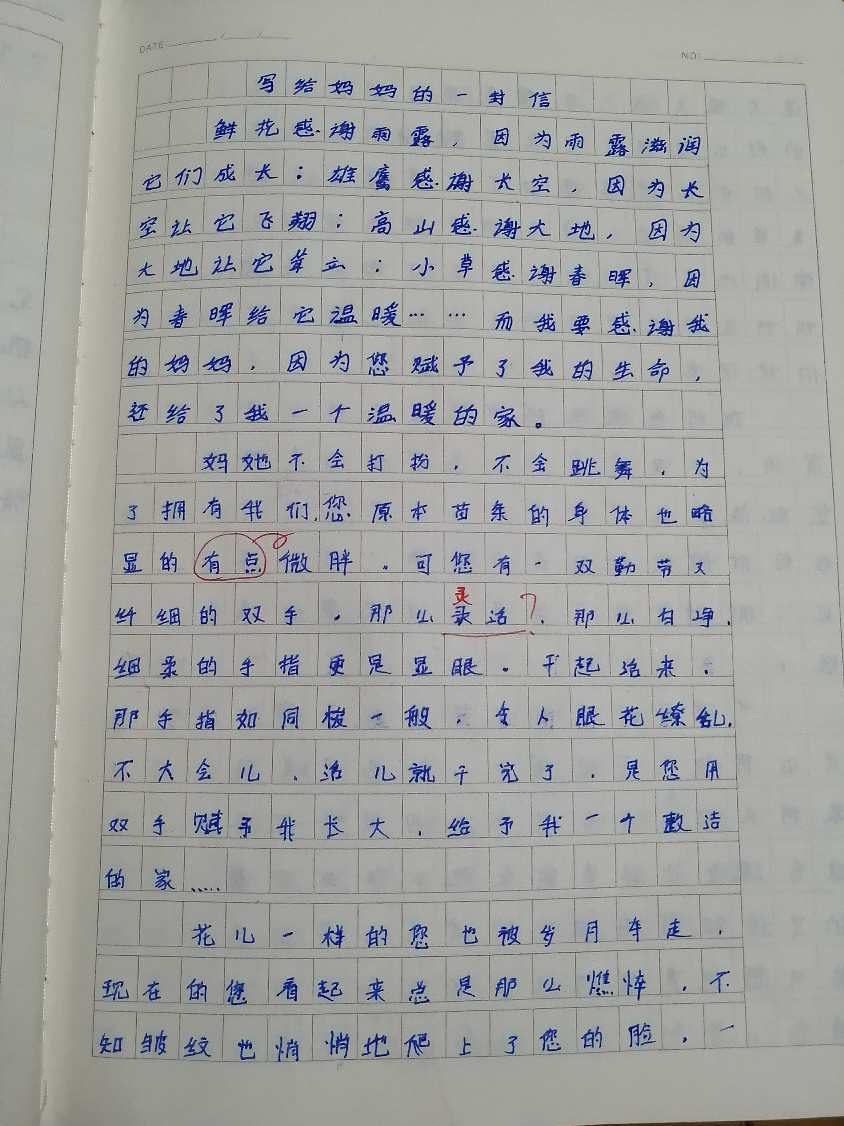 DATE / /
NO:
写给妈妈的一封信
鲜花感谢雨露，因为雨露滋润
它们成长；雄鹰感谢长空，因为长
空让它飞翔；高山感谢大地，因为
大地让它耸立；小草感谢春晖，因
为春晖给它温暖……而我要感谢我
的妈妈，因为您赋予了我的生命，
还给了我一个温暖的家。
妈她不会打扮，不会跳舞，为
了拥有我们，您原本苗条的身体也略
显的有点微胖。可您有一双勤劳又
纤细的双手，那么
灵
活？，那么白净，
细柔的手指更是显眼。干起活来，
那手指如同梭一般，令人眼花缭乱，
不大会儿，活儿就干完了，是您用
双手赋予我长大，给予我一个整洁
的家……
花儿一样的您也被岁月牵走，
现在的您看起来总是那么憔悴，不
知皱纹也悄悄地爬上了您的脸，一